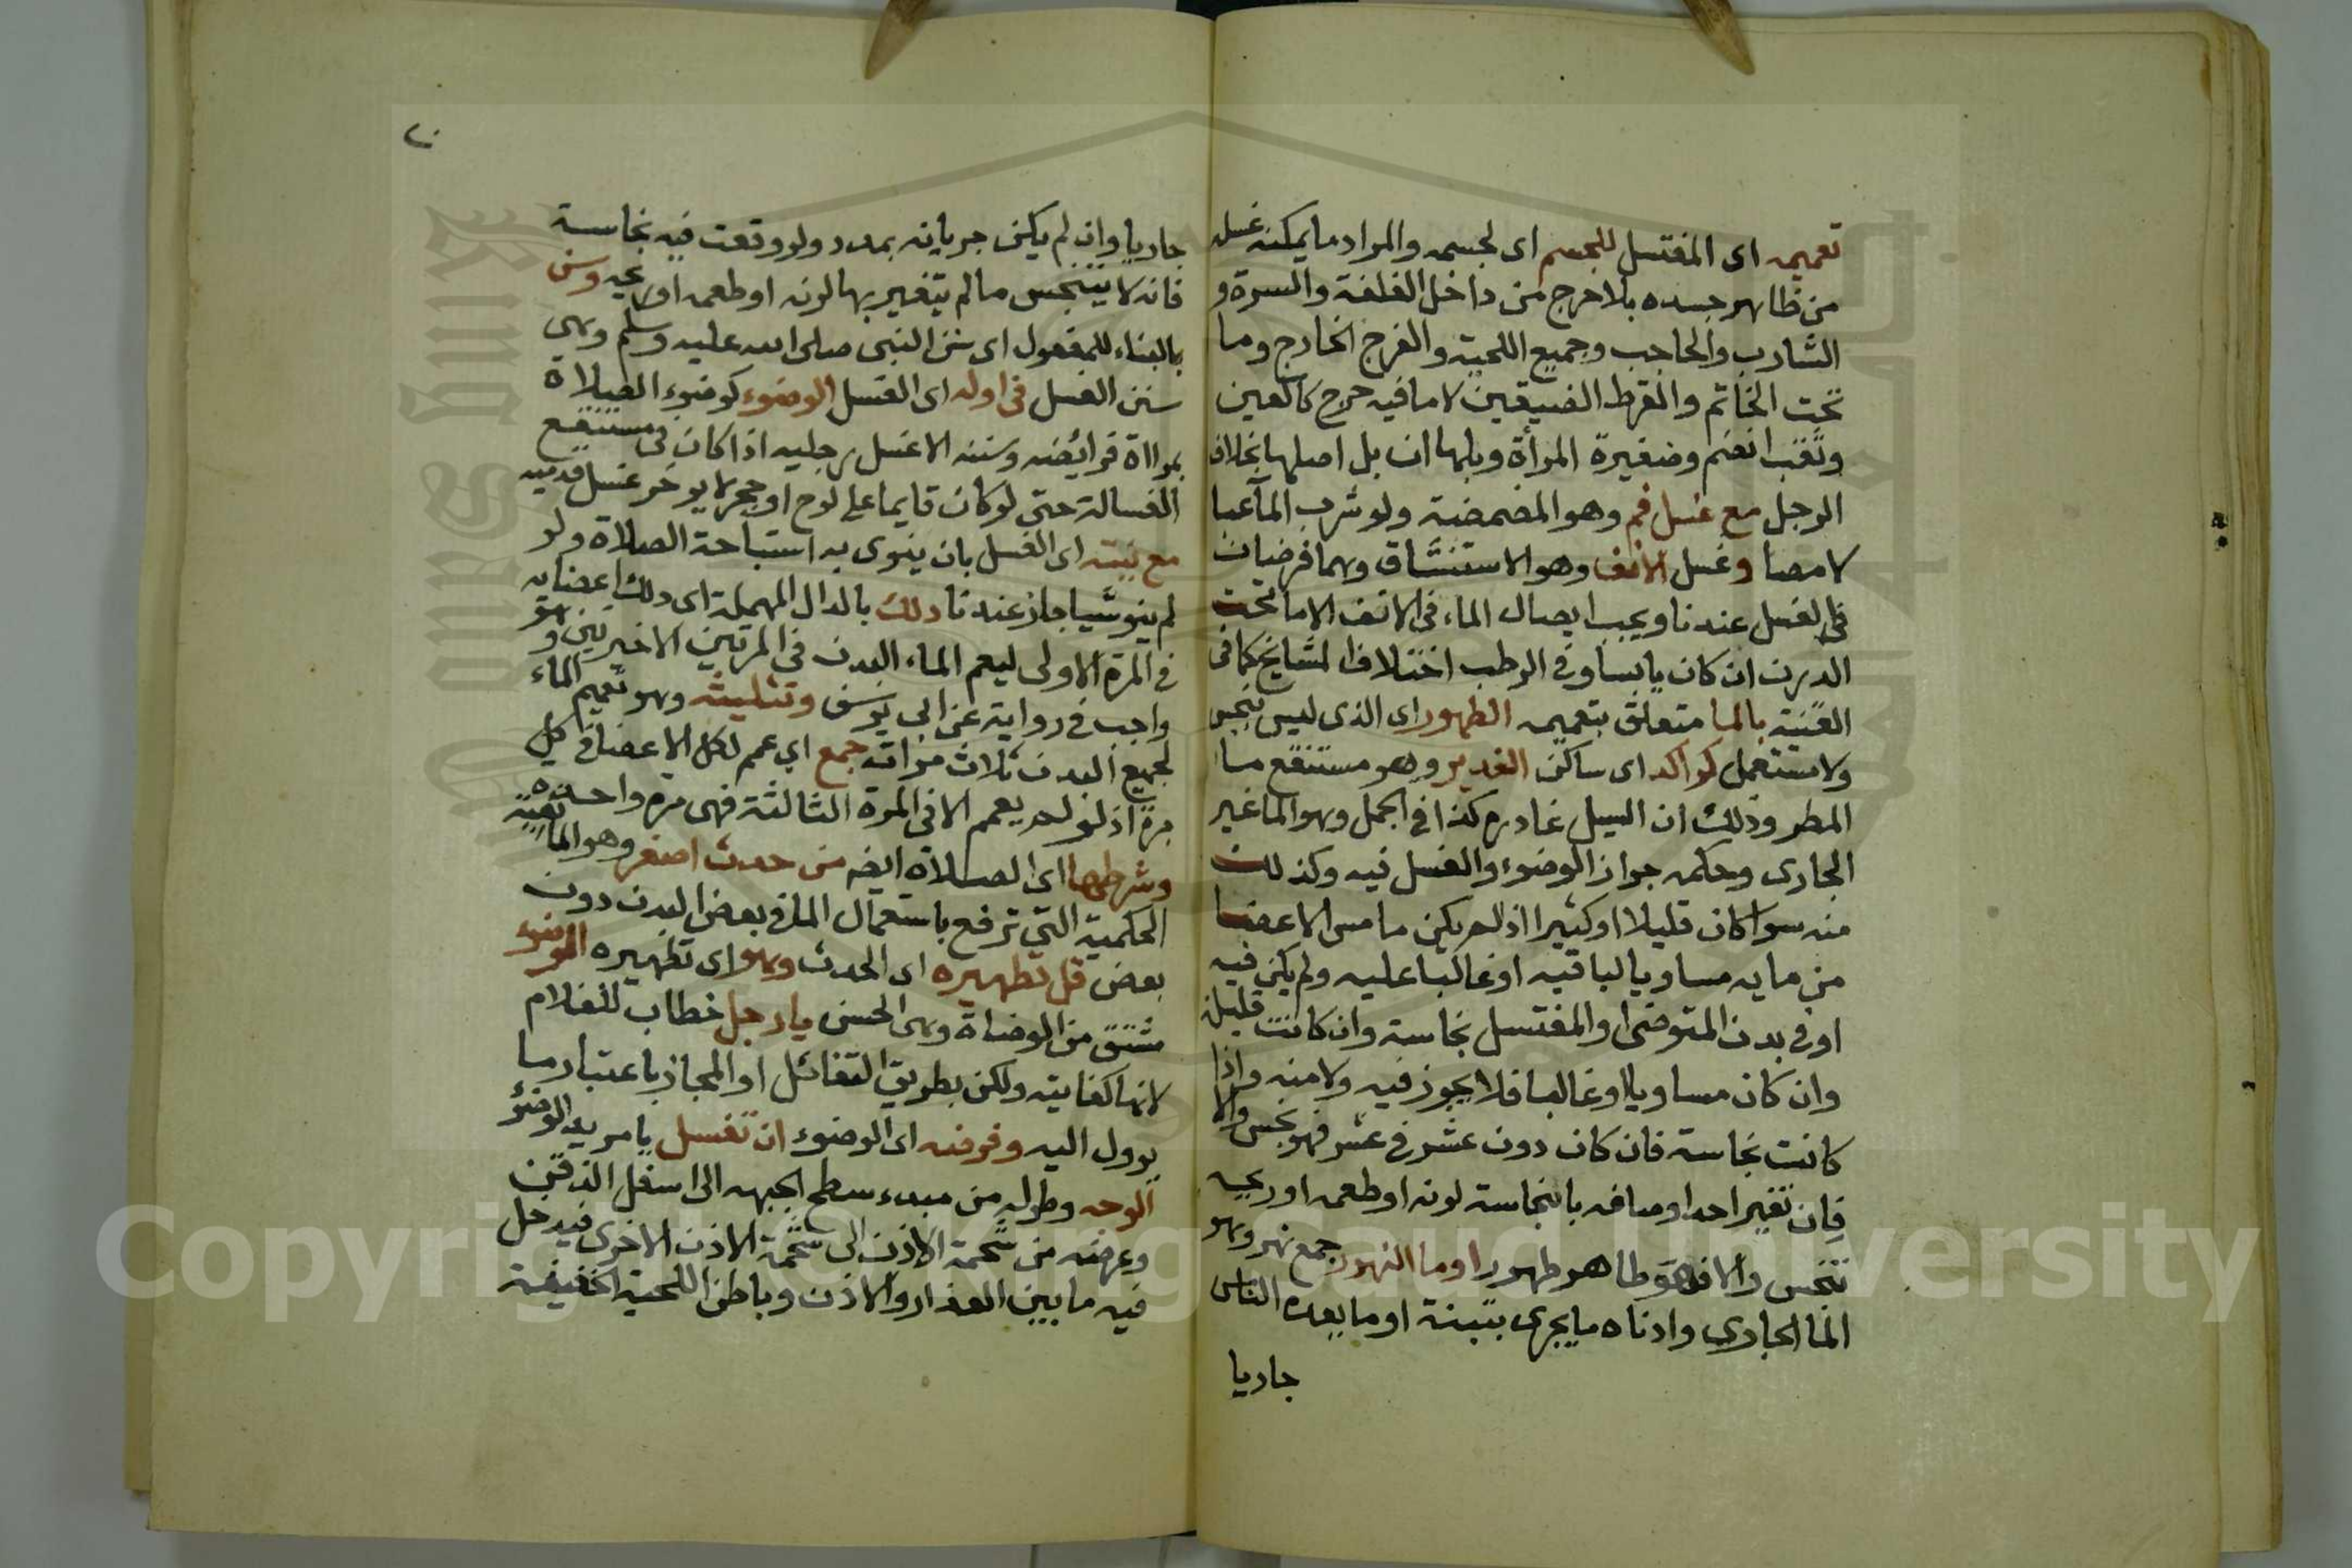 تعميمه اى المغتسل للجسم اى لجسمه والمراد ما يمكنه غسله
من ظاهر جسده بلا حرج من داخل القلفة والسرة و
الشارب والحاجب وجميع اللحية والفرج الخارج وما
تحت الخاتم والقرط الضيقين لا ما فيه حرج كالعين
وثقب انضم وضفيرة المرأة وبلها ان بل اصلها بخلاف
الرجل مع غسل فم وهو المضمضة ولو شرب المآ عبا
لا مصا وغسل الانف وهو الاستنشاق وهما فرضان
فى الغسل عندنا ويجب ايصال الماء فى الانف الا ما تحت
الدرن ان كان يابسا وفى الرطب اختلاف المشايخ كما فى
القنية بالما متعلق بتعميمه الطهور اى الذى ليس بنجس
ولا مستعمل كراكد اى ساكن الغدير وهو مستنقع ما
المطر وذلك ان السيل غادره كذا فى المجمل وهو الما غير
الجارى وحكمه جواز الوضوء والغسل فيه وكذلك
منه سوا كان قليلا او كثيرا اذ لم يكن ما مس الاعضا
من مايه مساويا لباقيه او غالبا عليه ولم يكن فيه
او فى بدن المتوضى او المغتسل نجاسة وان كانت قليلة
وان كان مساويا او غالبا فلا يجوز فيه ولا منه واذا
كانت نجاسة فان كان دون عشر فى عشر فهو نجس والا
فان تغير احد اوصافه بالنجاسة لونه او طعمه او ريحه
تنجس والا فهو طاهر طهور او ما النهور جمع نهر وهو
الما الجارى وادناه ما يجرى بتبنة او ما يعده الناس
جاريا
جاريا وان لم يكن جريانه بمدد ولو وقعت فيه نجاسة
فانه لا يتنجس ما لم يتغير بها لونه او طعمه او ريحه وسن
بالبناء للمفعول اى سن النبى صلى الله عليه وسلم وهى
سنن الغسل فى اوله اى الغسل الوضوء كوضوء الصلاة
بمراة فرائضه وسننه الا غسل رجليه اذا كان فى مستنقع
الغسالة حتى لو كان قايما على لوح او حجر لا يوخر غسل قدميه
مع نيته اى الغسل بان ينوى به استباحة الصلاة ولو
لم ينو شيا جاز عندنا دلك بالدال المهملة اى دلك اعضايه
فى المرة الاولى ليعم الماء البدن فى المرتين الاخيرتين وهو
واجب فى رواية عن ابى يوسف وتثليثه وهو تعميم الماء
لجميع البدن ثلاث مرات جمع اي عمم لكل الاعضا فى كل
مرة اذ لو لم يعمم الا فى المرة الثالثة فهى مرة واحدة
وشرطها اى الصلاة ايضه من حدث اصغر وهو المانعية
الحكمية التى ترفع باستعمال الما فى بعض البدن دون
بعض قل تطهيره اى الحدث وهو اى تطهيره الوضوء
مشتق من الوضاة وهى الحسن يا رجل خطاب للغلام
لانها كفايته ولكن بطريق التفائل او المجاز باعتبار ما
يوول اليه وفرضه اى الوضوء ان تغسل يا مريد الوضوء
الوجه وطوله من مبدء سطح الجبهه الى اسفل الذقن
وعرضه من شحمة الاذن الى شحمة الاذن الاخرى فيدخل
فيه ما بين العذار والاذن وباطن اللحية الخفيفة
Copyright © King Saud University